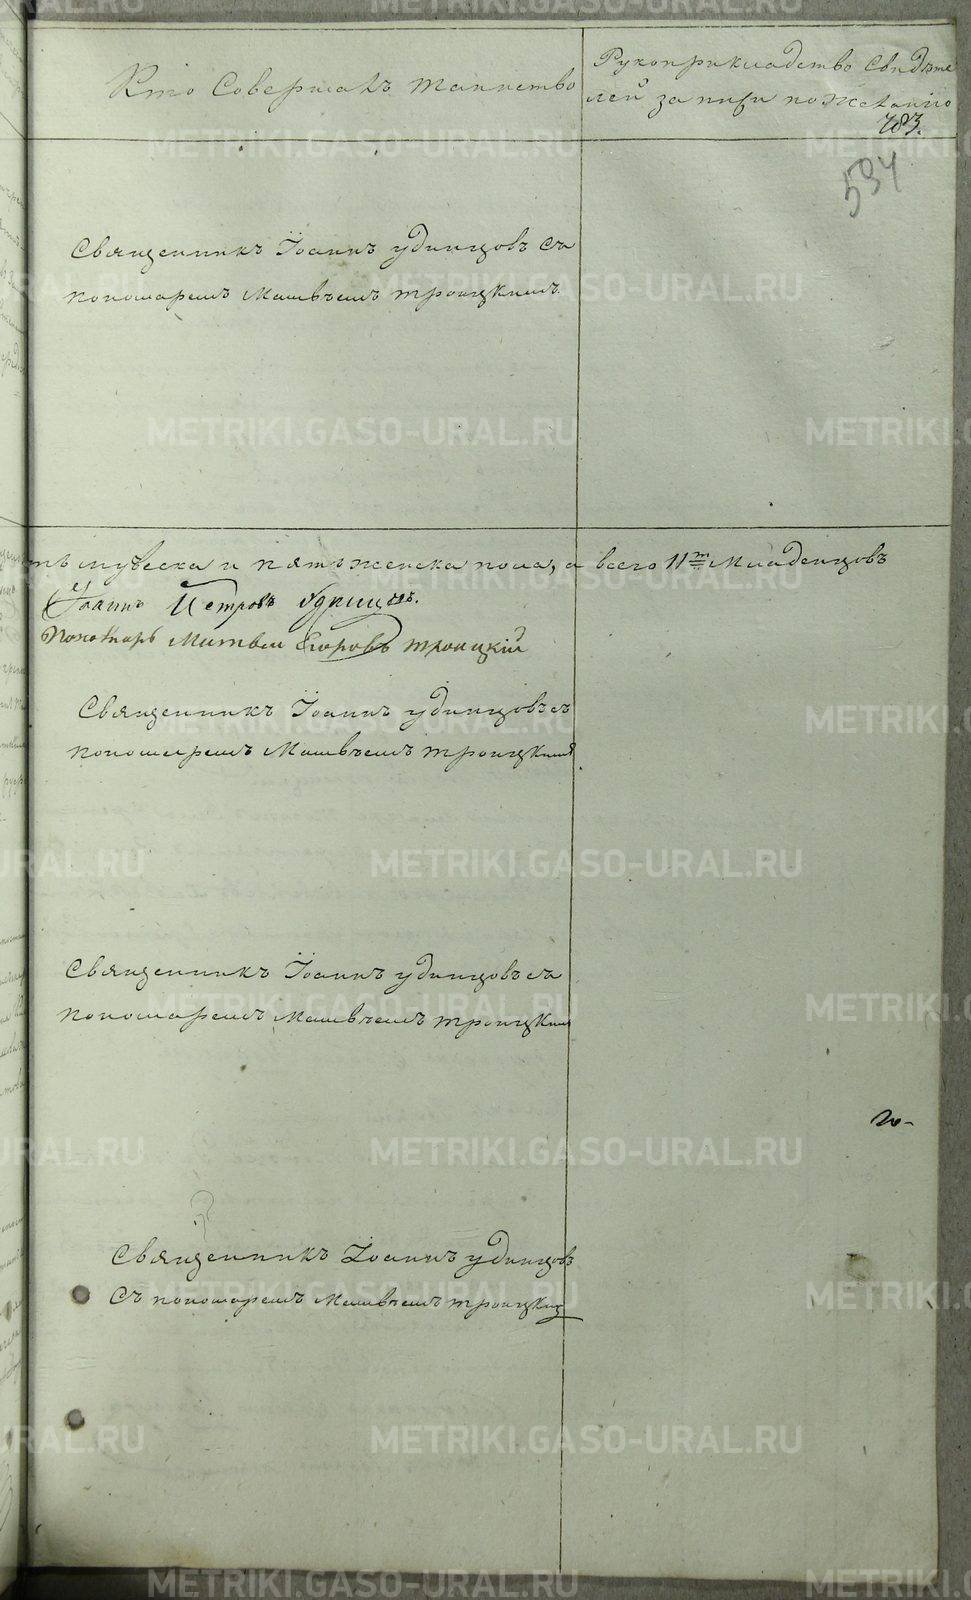 Кто Совершалъ таинство
Рукоприкладство Свидѣте
лей записи по Желанію
783.
534
Священникъ Іоаннъ удинцовъ съ
пономаремъ Матвѣемъ троицкимъ
ть мужеска и пять женска пола, а всего 11ть Младенцовъ
Іоаннъ Петровъ Удинцовъ.
Пономарь Матвей Егоровъ троицкій
Священникъ Іоаннъ удинцовъ съ
пономаремъ Матвѣемъ троицкимъ
Священникъ Іоаннъ удинцовъ съ
пономаремъ Матвѣемъ троицкимъ
Священникъ Іоаннъ удинцовъ
Съ пономаремъ Матвѣемъ троицким
METRIKI.GASO-URAL.RU